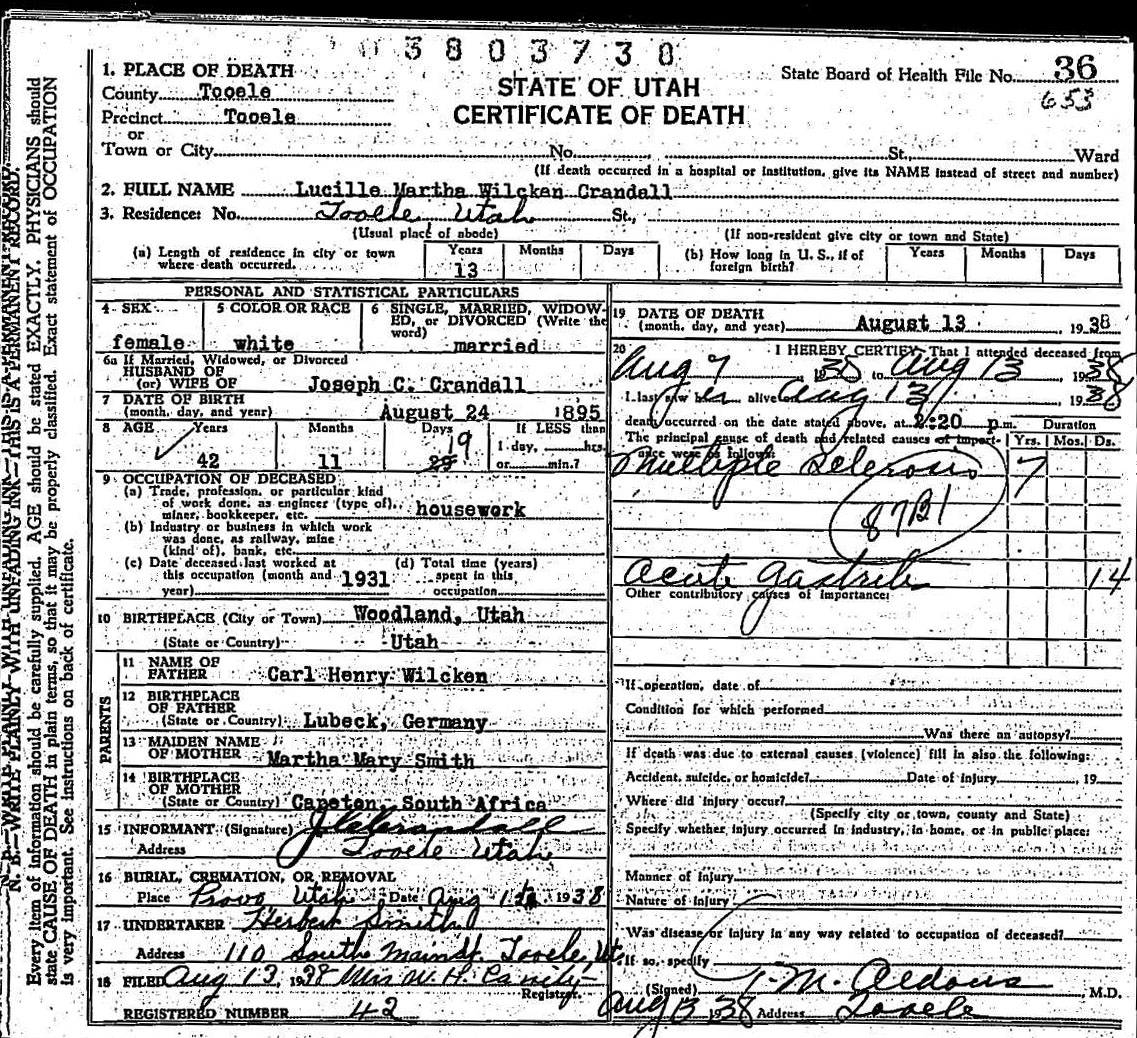 3803730
1. PLACE OF DEATH
County Tooele
Precinct Tooele
or
Town or City No. St., Ward
STATE OF UTAH
CERTIFICATE OF DEATH
State Board of Health File No. 36
653
(If death occurred in a hospital or institution, give its NAME instead of street and number)
2. FULL NAME Lucille Martha Wilcken Crandall
3. Residence: No. Tooele, Utah St.,
(Usual place of abode) (If non-resident give city or town and State)
(a) Length of residence in city or town where death occurred. Years 13 Months Days
(b) How long in U. S., if of foreign birth? Years Months Days
PERSONAL AND STATISTICAL PARTICULARS
4 SEX female
5 COLOR OR RACE white
6 SINGLE, MARRIED, WIDOWED, or DIVORCED (Write the word) married
6a If Married, Widowed, or Divorced
HUSBAND OF
(or) WIFE OF Joseph C. Crandall
7 DATE OF BIRTH
(month, day, and year) August 24 1895
8 AGE Years 42 Months 11 Days 19 If LESS than 1 day, hrs. or min.?
9 OCCUPATION OF DECEASED
(a) Trade, profession, or particular kind
of work done, as engineer (type of),
miner, bookkeeper, etc. housework
(b) Industry or business in which work
was done, as railway, mine
(kind of), bank, etc.
(c) Date deceased last worked at
this occupation (month and
year) 1931
(d) Total time (years)
spent in this
occupation
10 BIRTHPLACE (City or Town) Woodland, Utah
(State or Country) Utah
PARENTS
11 NAME OF
FATHER Carl Henry Wilcken
12 BIRTHPLACE
OF FATHER
(State or Country) Lubeck, Germany
13 MAIDEN NAME
OF MOTHER Martha Mary Smith
14 BIRTHPLACE
OF MOTHER
(State or Country) Capeton, South Africa
15 INFORMANT (Signature) J C Crandall
Address Tooele Utah
16 BURIAL, CREMATION, OR REMOVAL
Place Provo Utah Date Aug 1938
17 UNDERTAKER Herbert Smith
Address 110 South Main St. Tooele, Ut.
18 FILED Aug 13, 1938 Mrs W. H.
Registrar.
REGISTERED NUMBER 42
19 DATE OF DEATH
(month, day, and year) August 13 1938
20 I HEREBY CERTIFY, That I attended deceased from
Aug 7 1938 to Aug 13 1938
I last saw her alive Aug 13 1938
death occurred on the date stated above, at 2:20 p.m.
The principal cause of death and related causes of importance were as follows:
Duration
Yrs. Mos. Ds.
Multiple Sclerosis 7
87B1
Acute Gastritis 14
Other contributory causes of importance:
If operation, date of
Condition for which performed
Was there an autopsy?
If death was due to external causes (violence) fill in also the following:
Accident, suicide, or homicide? Date of injury , 19
Where did injury occur?
(Specify city or town, county and State)
Specify whether injury occurred in industry, in home, or in public place:
Manner of injury
Nature of injury
Was disease or injury in any way related to occupation of deceased?
If so, specify
(Signed) T. M. Aldous, M.D.
Aug 13 1938 Address Tooele
N. B.—WRITE PLAINLY WITH UNFADING INK—THIS IS A PERMANENT RECORD.
Every item of information should be carefully supplied. AGE should be stated EXACTLY. PHYSICIANS should
state CAUSE OF DEATH in plain terms, so that it may be properly classified. Exact statement of OCCUPATION
is very important. See instructions on back of certificate.